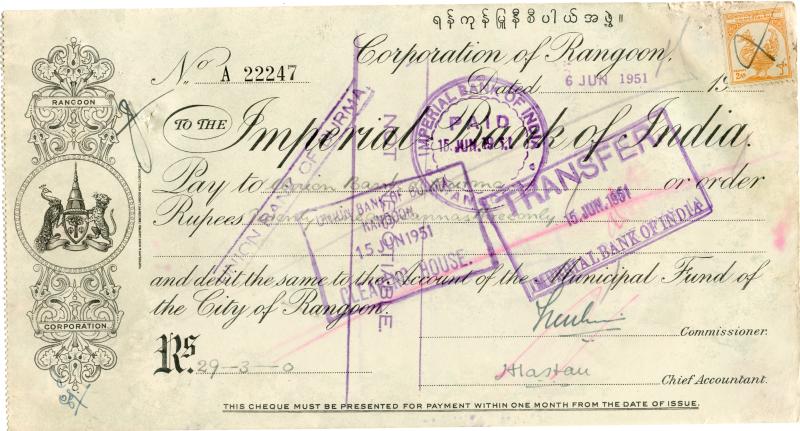 ရန်ကုန်မြူနီစီပါယ်အဖွဲ့။
Corporation of Rangoon.
No A 22247
Dated 6 JUN 1951 19
RANGOON
TO THE Imperial Bank of India.
Pay to Union Bank of Burma or order
Rupees Twenty nine annas three only
and debit the same to the Account of the Municipal Fund of
the City of Rangoon.
CORPORATION
Commissioner.
Rs. 29-3-0
Chief Accountant.
THIS CHEQUE MUST BE PRESENTED FOR PAYMENT WITHIN ONE MONTH FROM THE DATE OF ISSUE.
UNION BANK OF BURMA
NOT NEGOTIABLE.
IMPERIAL BANK OF INDIA
PAID
15. JUN. 1951
UNION BANK OF BURMA
RANGOON.
15 JUN 1951
CLEARING HOUSE.
TRANSFER
15 JUN. 1951
IMPERIAL BANK OF INDIA